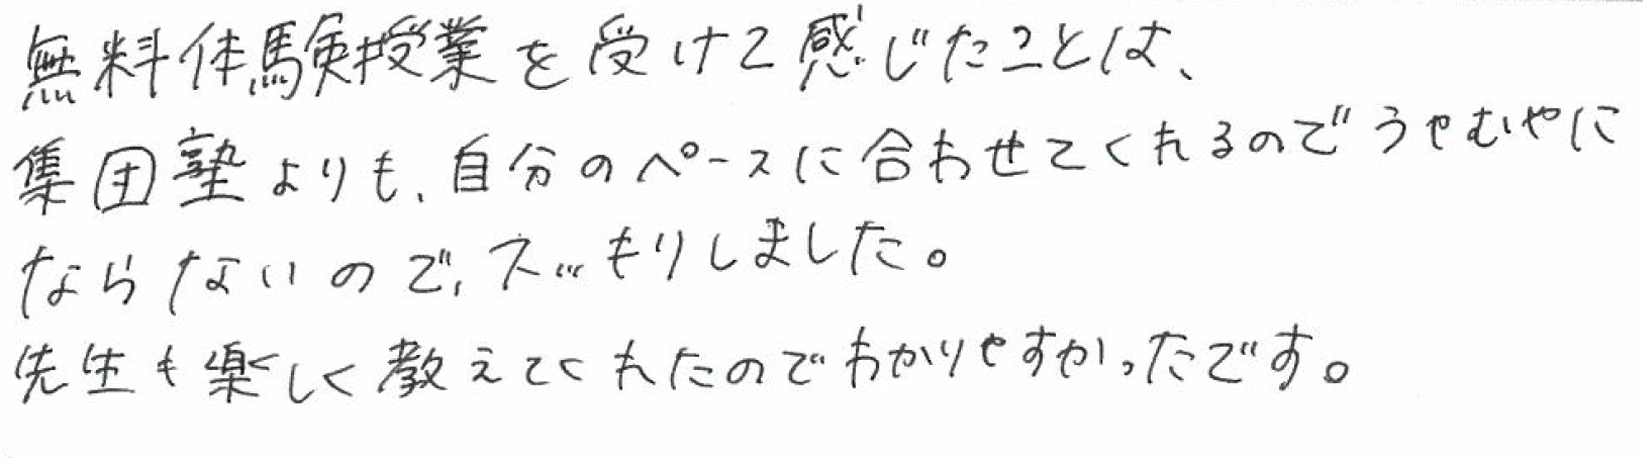 無料体験授業を受けて感じたことは、
集団塾よりも、自分のペースに合わせてくれるのでうやむやに
ならないので、スッキリしました。
先生も楽しく教えてくれたのでわかりやすかったです。